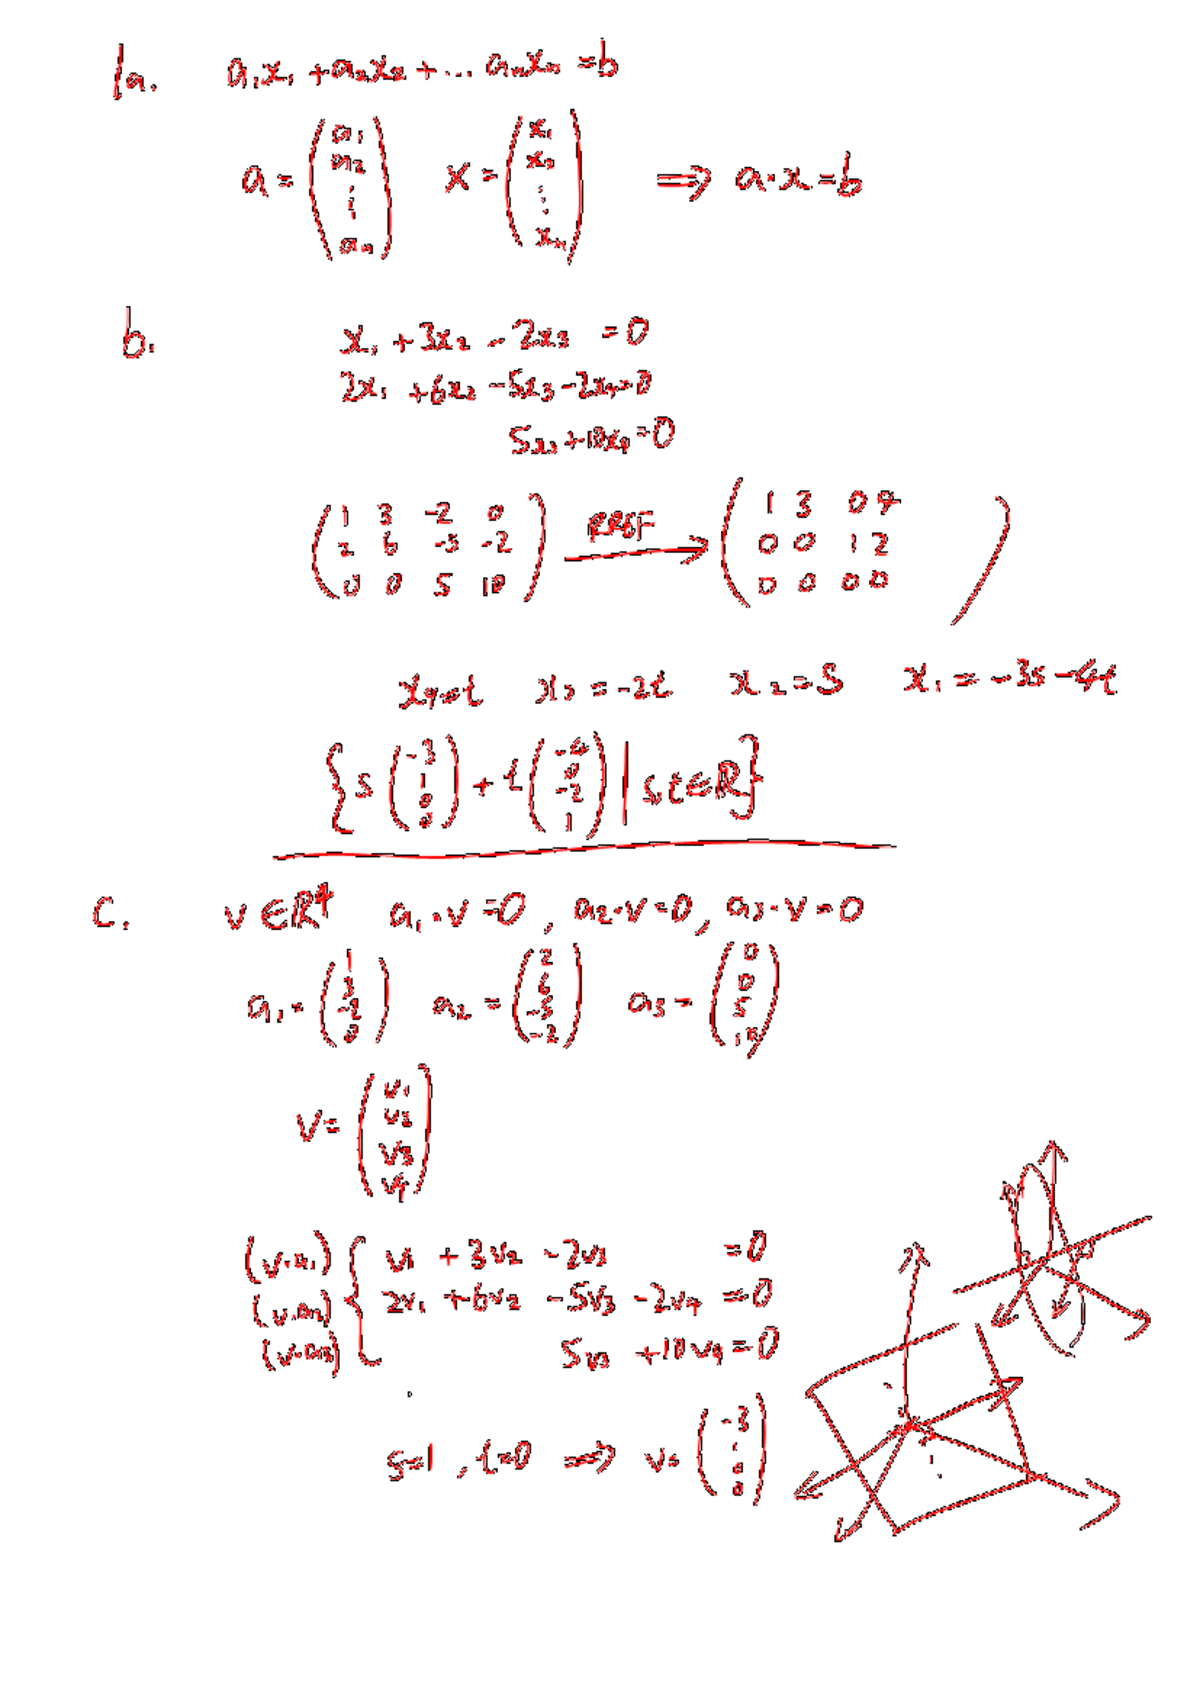 1a. a₁x₁ + a₂x₂ + ... aₙxₙ = b
a = (a₁ a₂ ⋮ aₙ) x = (x₁ x₂ ⋮ xₙ) ⟹ a·x = b
b. x₁ + 3x₂ - 2x₃ = 0
2x₁ + 6x₂ - 5x₃ - 2x₄ = 0
5x₃ + 10x₄ = 0
(1 3 -2 0 RREF (1 3 0 4
2 6 -5 -2 → 0 0 1 2
0 0 5 10) 0 0 0 0)
x₄ = t x₃ = -2t x₂ = s x₁ = -3s - 4t
{s(-3 1 0 0) + t(-4 0 -2 1) | s, t ∈ ℝ}
c. v ∈ ℝ⁴ a₁·v = 0, a₂·v = 0, a₃·v = 0
a₁ = (1 3 -2 0) a₂ = (2 6 -5 -2) a₃ = (0 0 5 10)
v = (v₁ v₂ v₃ v₄)
(v·a₁) { v₁ + 3v₂ - 2v₃ = 0
(v·a₂) 2v₁ + 6v₂ - 5v₃ - 2v₄ = 0
(v·a₃) 5v₃ + 10v₄ = 0
s=1, t=0 ⟹ v = (-3 1 0 0)